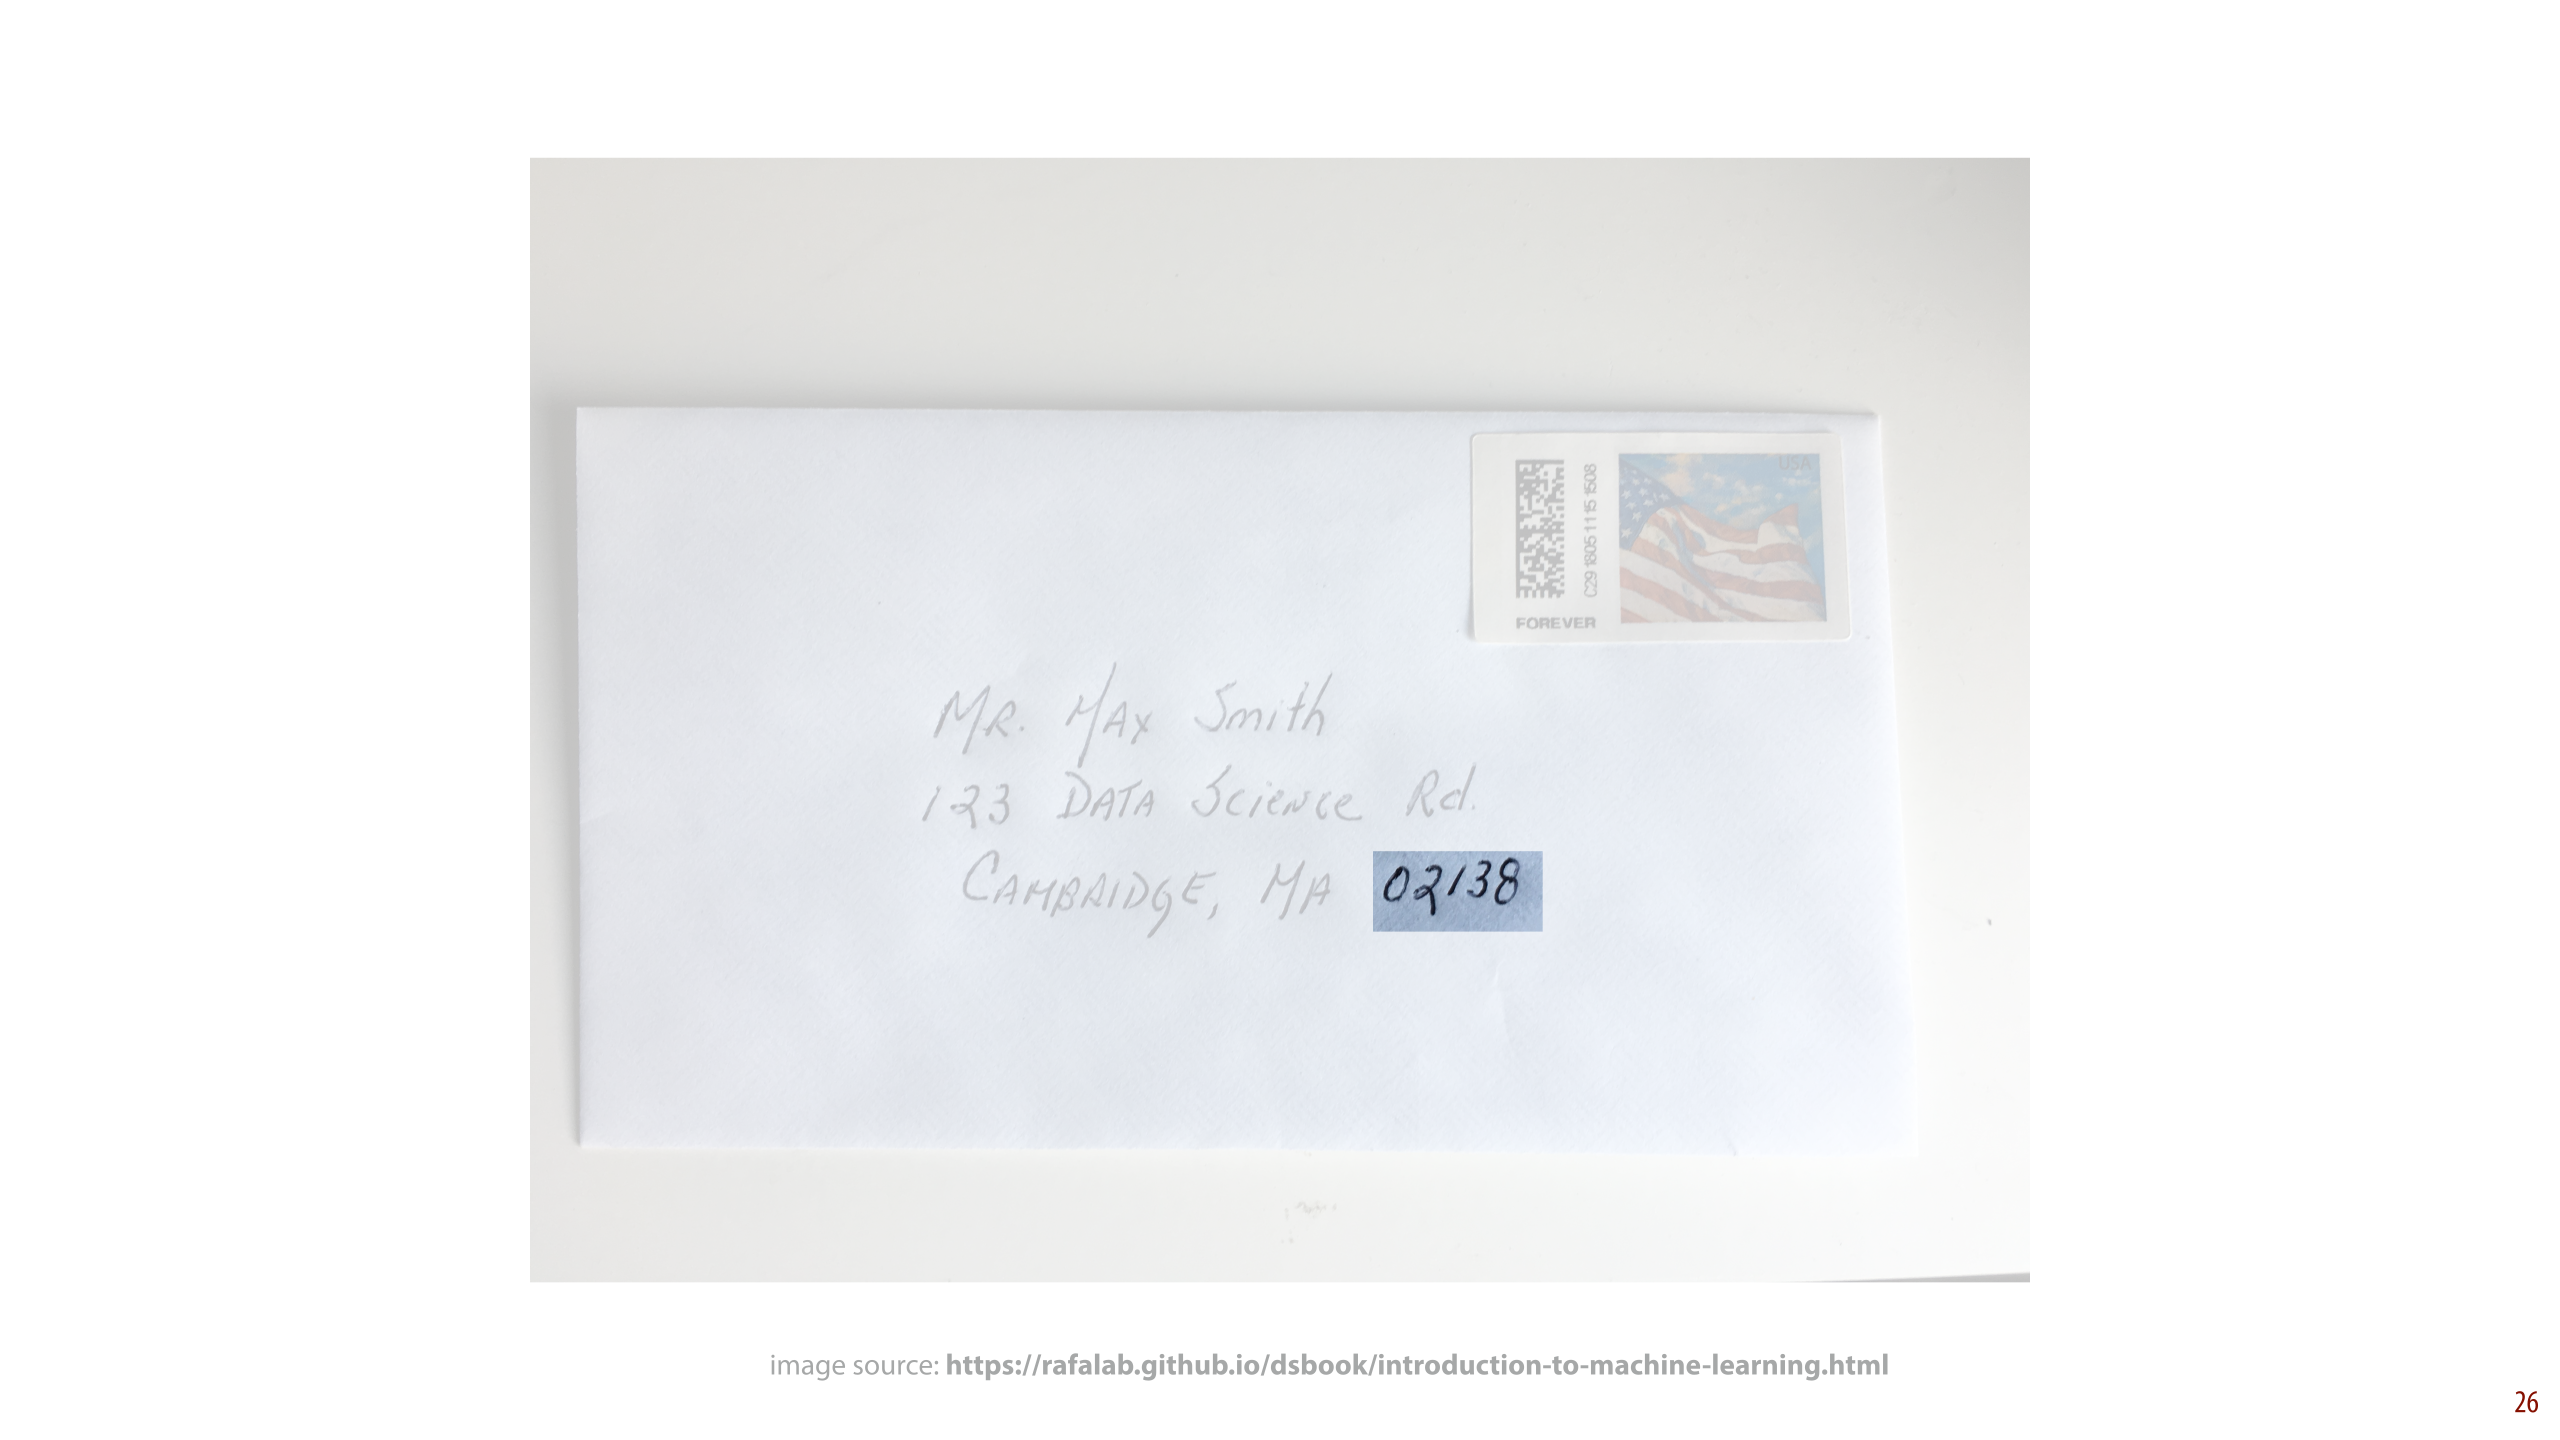 USA
C29 1805 1115 1508
FOREVER
MR. MAX Smith
123 DATA Science Rd.
CAMBRIDGE, MA 02138
image source: https://rafalab.github.io/dsbook/introduction-to-machine-learning.html
26